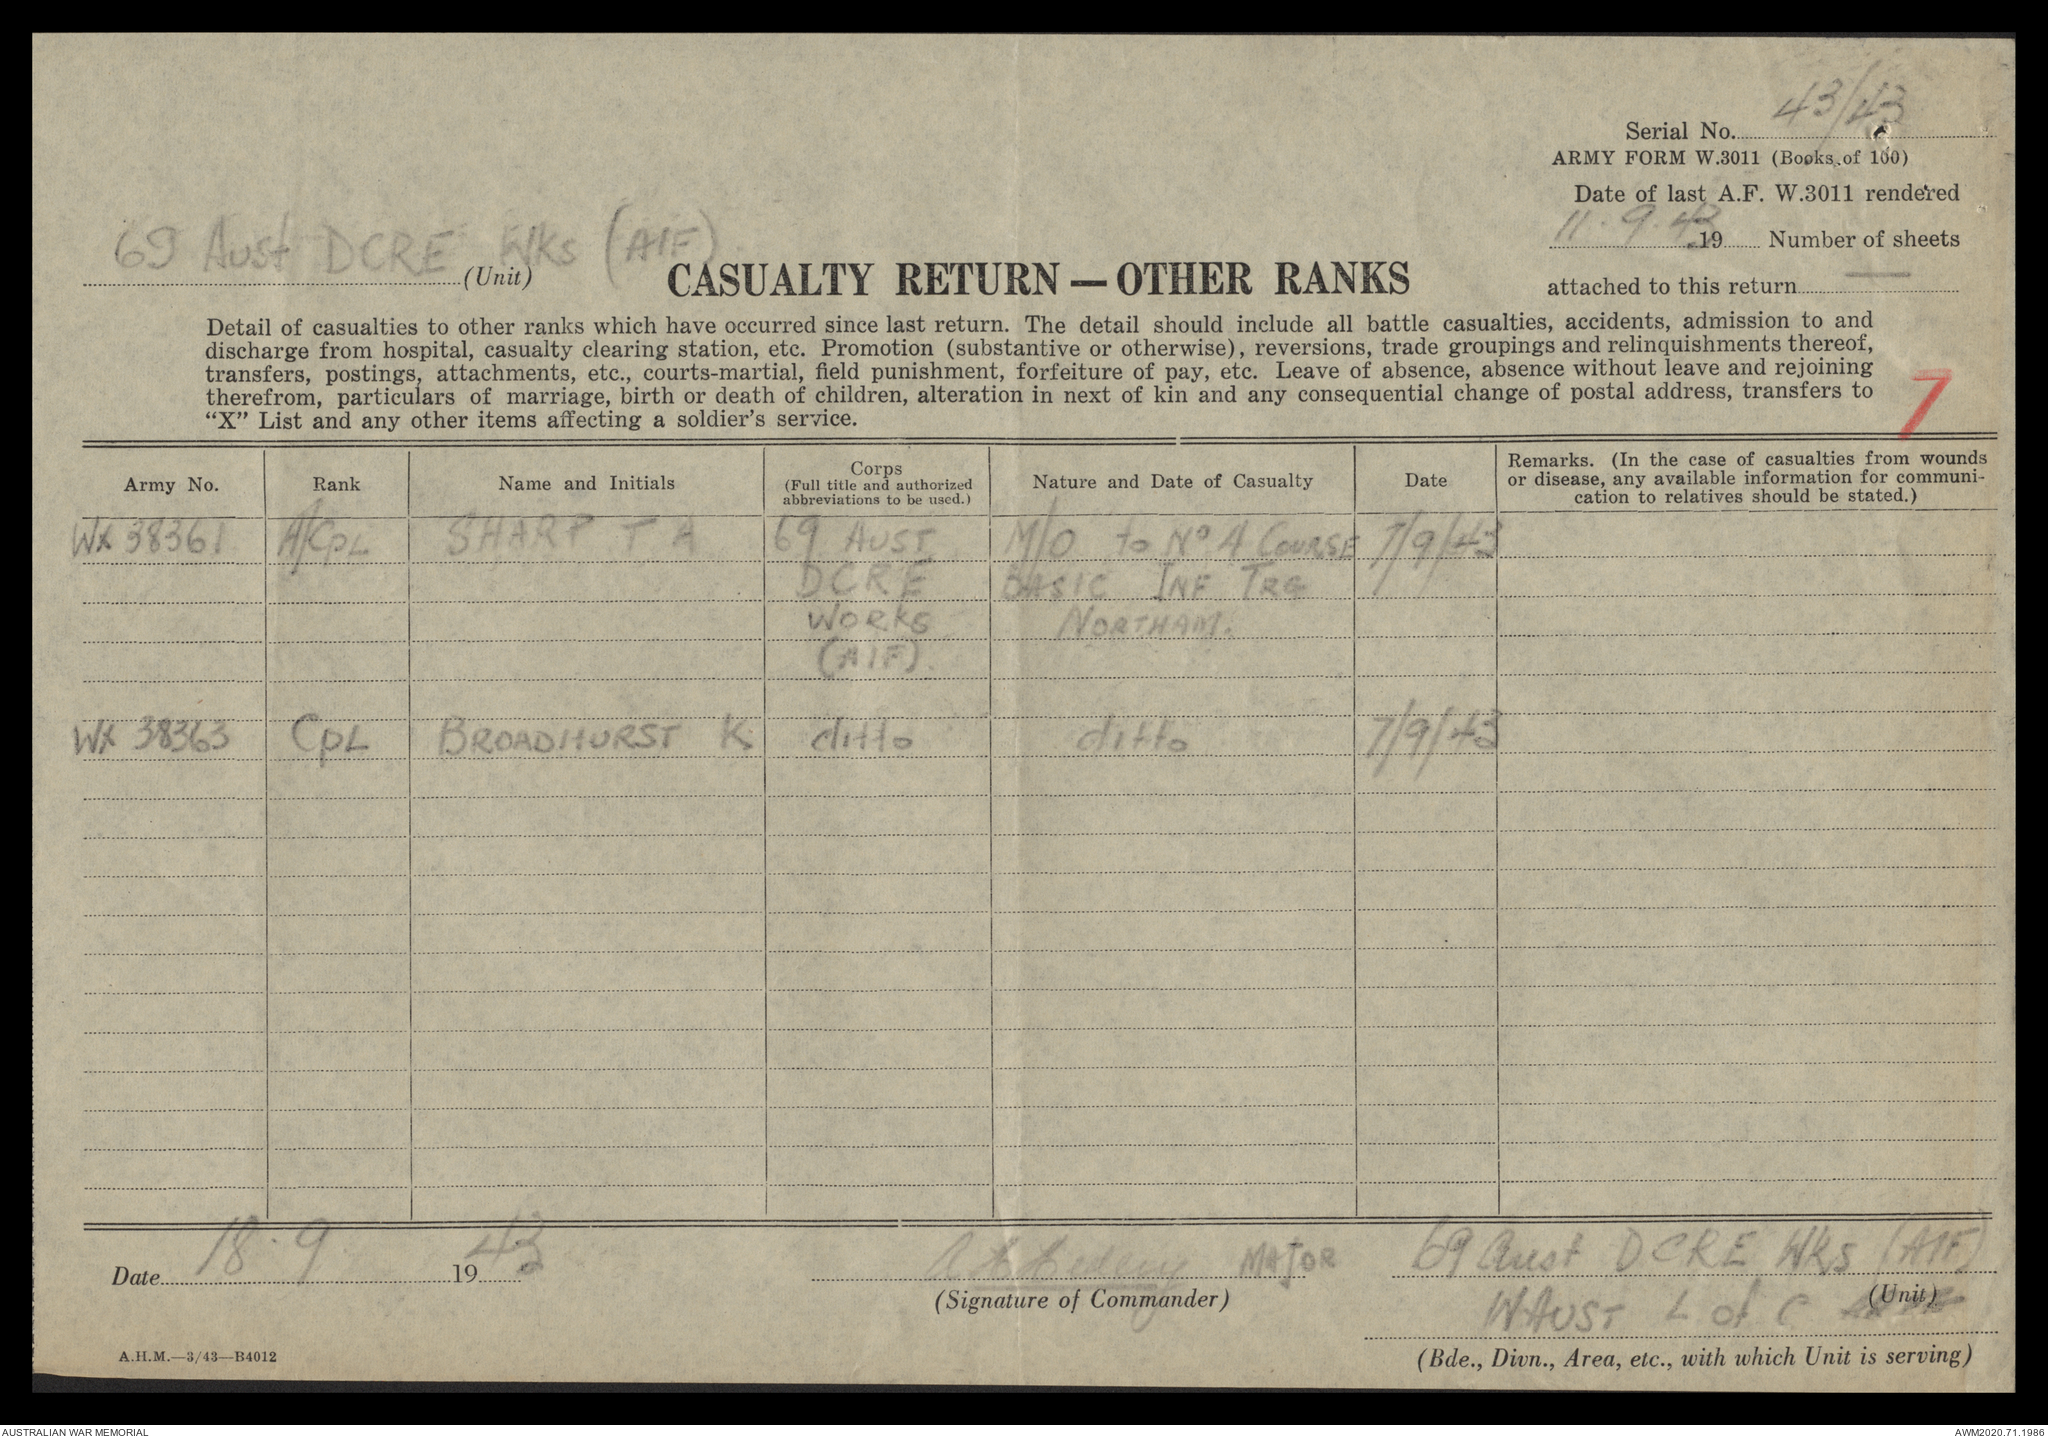 Serial No. 43/43
ARMY FORM W.3011 (Books of 100)
Date of last A.F. W.3011 rendered
11.9.43 19 Number of sheets
attached to this return —
69 Aust DCRE Wks (AIF)
(Unit)
CASUALTY RETURN — OTHER RANKS
Detail of casualties to other ranks which have occurred since last return. The detail should include all battle casualties, accidents, admission to and
discharge from hospital, casualty clearing station, etc. Promotion (substantive or otherwise), reversions, trade groupings and relinquishments thereof,
transfers, postings, attachments, etc., courts-martial, field punishment, forfeiture of pay, etc. Leave of absence, absence without leave and rejoining
therefrom, particulars of marriage, birth or death of children, alteration in next of kin and any consequential change of postal address, transfers to
“X” List and any other items affecting a soldier’s service.
7
Army No. Rank Name and Initials Corps Nature and Date of Casualty Date Remarks. (In the case of casualties from wounds
(Full title and authorized or disease, any available information for communi-
abbreviations to be used.) cation to relatives should be stated.)
WX 38361 A/CPL SHARP T A 69 AUST M/O to No 4 COURSE 7/9/43
DCRE BASIC INF TRG
WORKS NORTHAM.
(AIF).
WX 38363 CPL BROADHURST K ditto ditto 7/9/43
Date 18.9. 1943 MAJOR 69 Aust DCRE Wks (AIF)
(Signature of Commander) (Unit)
W AUST L of C
A.H.M.—3/43—B4012
(Bde., Divn., Area, etc., with which Unit is serving)
AUSTRALIAN WAR MEMORIAL AWM2020.71.1986